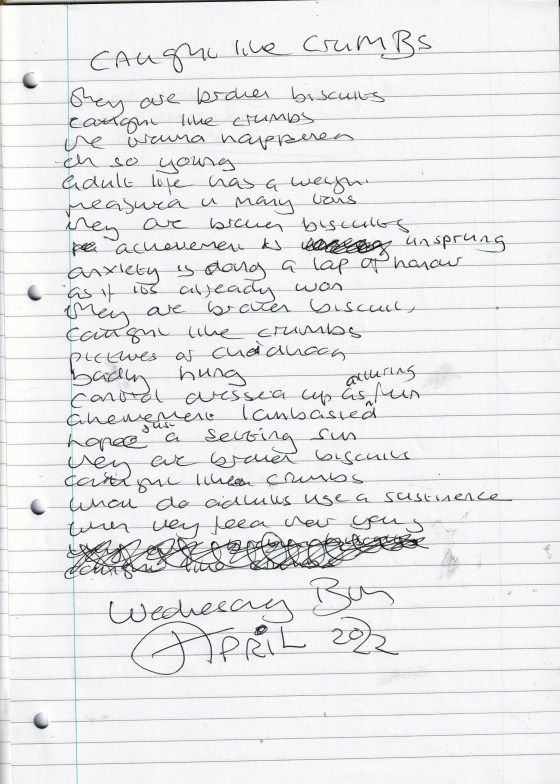 CAUGHT like CRUMBS
they are broken biscuits
caught like crumbs
oh so young
adult life has a weight
measured in many tons
they are broken biscuits
achievement is unsprung
anxiety is doing a lap of honour
as if its already won
they are broken biscuits
caught like crumbs
pictures of childhood
badly hung
control dressed up as alluring fun
achievement lambasted
hope just a setting sun
they are broken biscuits
caught like crumbs
what do adults use a sustinence
when they feed their young
caught like
Wednesday Boy
APRIL 2022